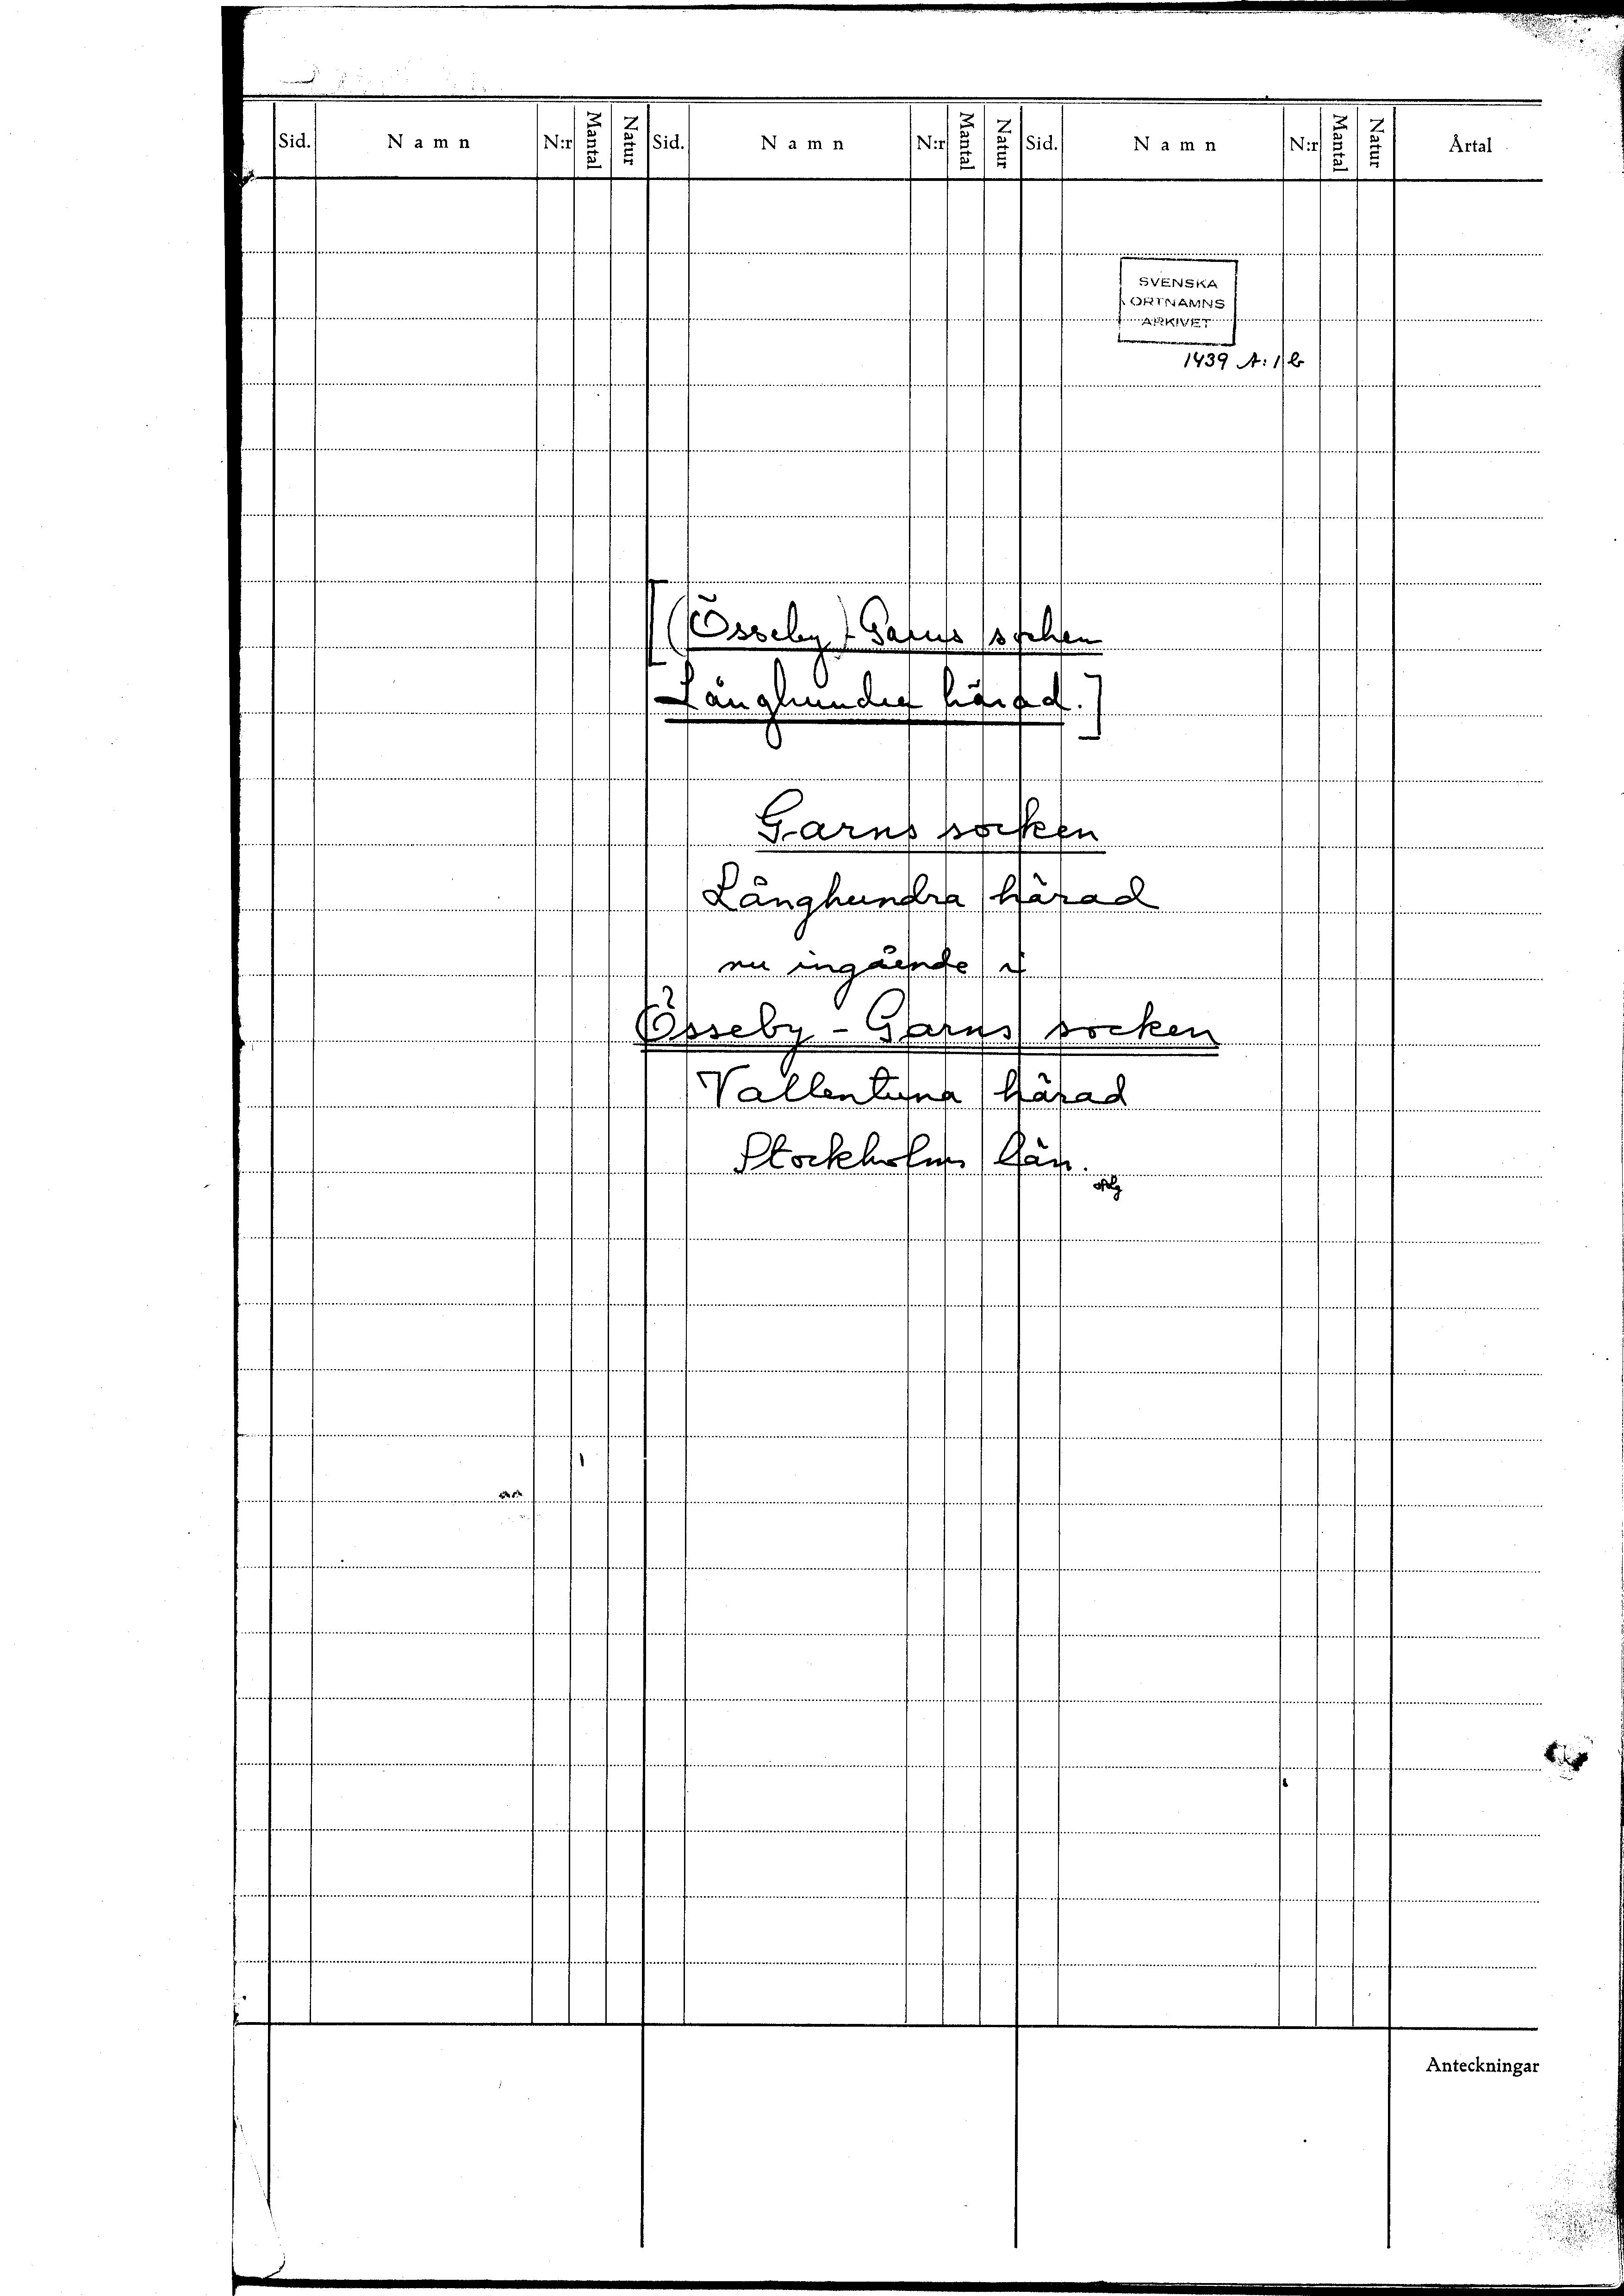 Sid. Namn N:r Mantal Natur Sid. Namn N:r Mantal Natur Sid. Namn N:r Mantal Natur Årtal
SVENSKA
ORTNAMNS
ARKIVET
1439 A:1 b
[(Össeby)-Garns socken
Långhundra härad.]
Garns socken
Långhundra härad
nu ingående i
Össeby-Garns socken
Vallentuna härad
Stockholms län.
Anteckningar